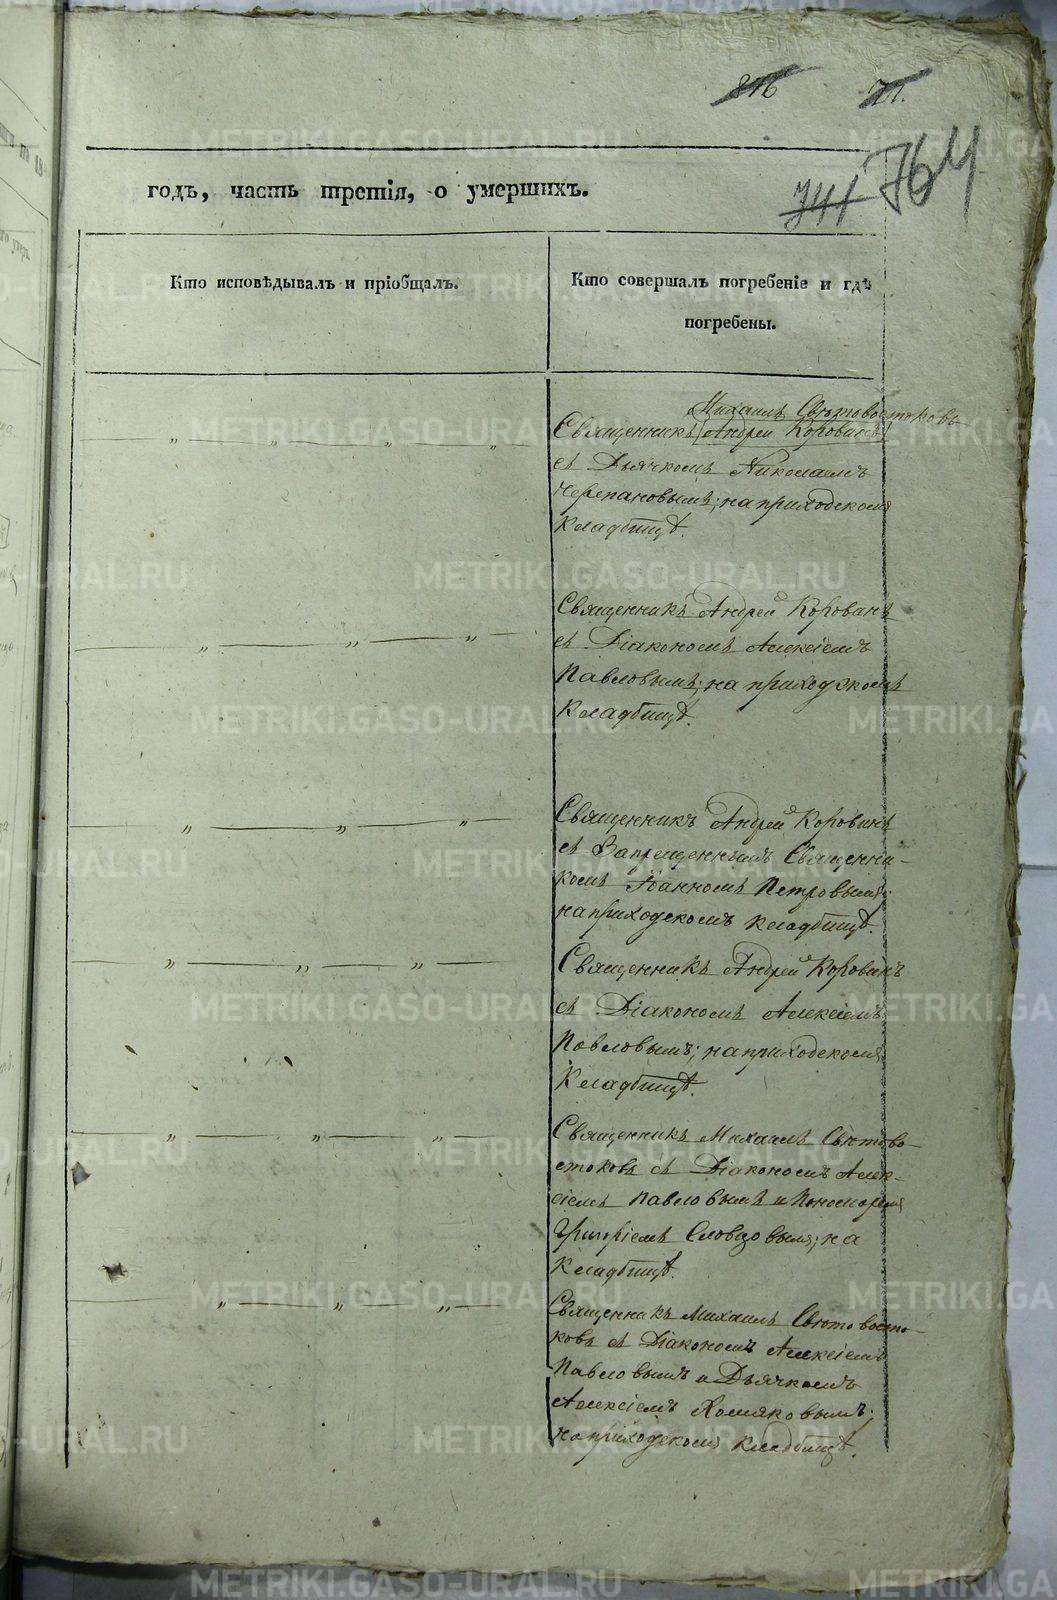 816 71.
741 764
годъ, часть третія, о умершихъ.
Кто исповѣдывалъ и пріобщалъ.
Кто совершалъ погребеніе и гдѣ
погребены.
Михаилъ Свѣтовостоковъ
Священникъ [Андрей Коровинъ]
съ Дьячкомъ Николаемъ
Черепановымъ; на приходскомъ
Кладбищѣ.
Священникъ Андрей Коровинъ
съ Діакономъ Алексіемъ
Павловымъ; на приходскомъ
Кладбищѣ.
Священникъ Андрей Коровинъ
съ Запрещеннымъ Священни-
комъ Іоанномъ Петровымъ;
на приходскомъ кладбищѣ.
Священникъ Андрей Коровинъ
съ Діакономъ Алексіемъ
Павловымъ; на приходскомъ
Кладбищѣ.
Священникъ Михаилъ Свѣтово-
стоковъ съ Діакономъ Алек-
сіемъ Павловымъ и Пономаремъ
Григоріемъ Словцовымъ; на
Кладбищѣ.
Священникъ Михаилъ Свѣтовосто-
ковъ съ Діакономъ Алексіемъ
Павловымъ и Дьячкомъ
Алексіемъ Хомяковымъ;
на приходскомъ кладбищѣ.
METRIKI.GASO-URAL.RU